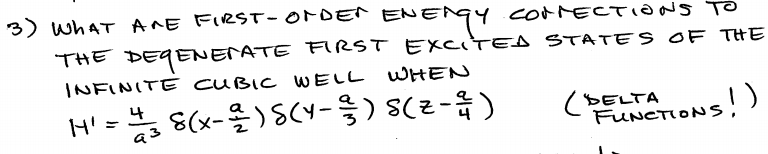 3) WHAT ARE FIRST-ORDER ENERGY CORRECTIONS TO
THE DEGENERATE FIRST EXCITED STATES OF THE
INFINITE CUBIC WELL WHEN
H' = 4/a³ δ(x-a/2) δ(y-a/3) δ(z-a/4) (DELTA FUNCTIONS!)